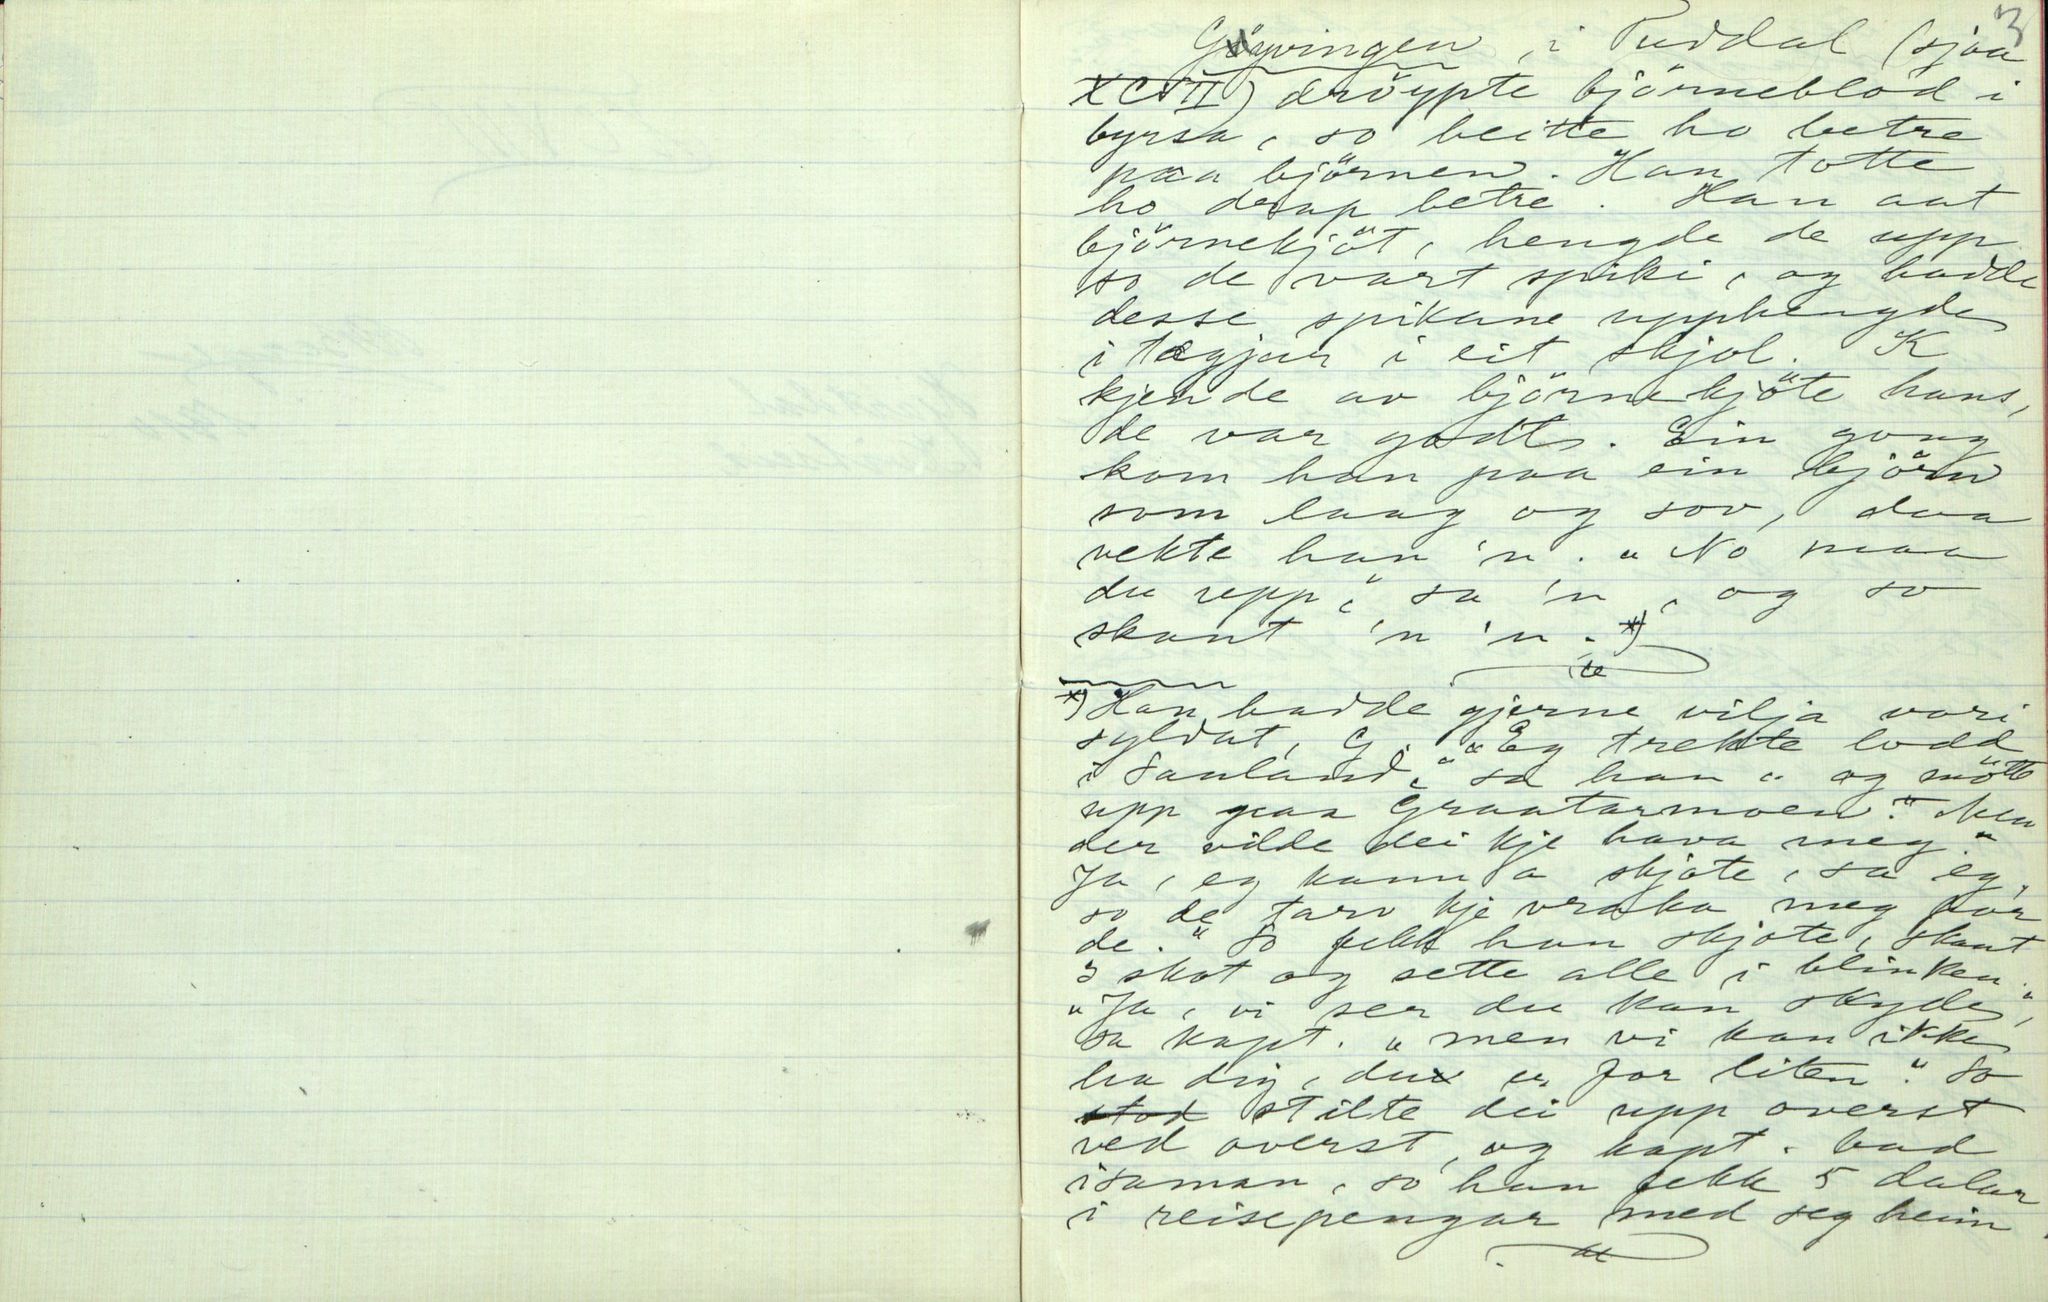 3
Gøyvingen, i Tuddal (sjaa
XCVII) dröypte björneblod i
byrsa, so beitte ho betre
paa björnen. Han totte
ho drap betre. Han aat
björnekjöt, hengde de upp
so de vart spiki, og hadde
desse spikane upphengde
i tægjar i eit skjol. K
kjende av björnekjöte hans,
de var godt. Ein gong
kom han paa ein björn
som laag og sov, daa
vekte han 'n. "No maa
du upp," sa 'n, og so
skaut 'n 'n. *)
*) Han hadde gjerne vilja vori
syldat, G. "Eg trekte lodd
i Sauland," sa han "og møtte
upp paa Graatarmoen." Men
der vilde dei kje hava meg."
Ja, eg kann a skjote, sa eg,
so de tarv kje vraka meg for
de." So fekk han skjote, skaut
3 skot og sette alle i blinken.
"Ja, vi ser du kan skyde,"
sa kapt. "men vi kan ikke
ha dig, du er for liten." So
stod stilte dei upp overst
ved overst, og kapt. bad
isaman, so han fekk 5 dalar
i reisepengar med seg heim